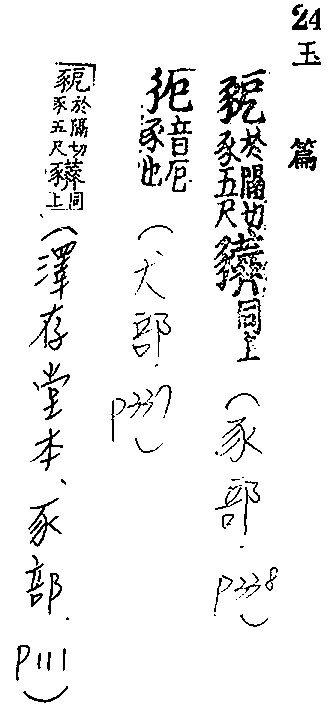 24 玉篇
豟於隔切豕五尺同上(豕部.P338)
音厄豕也(犬部.P337)
豟於隔切豕五尺同上(澤存堂本、豕部.P111)